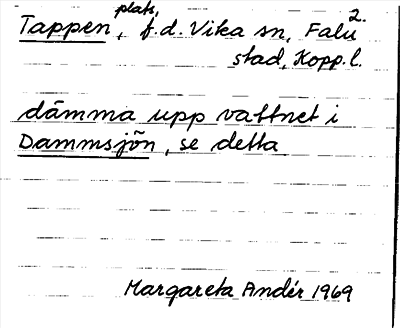 2.
Tappen, plats, f.d. Vika sn, Falu
stad, Kopp.l.
dämma upp vattnet i
Dammsjön, se detta
Margareta Andér 1969